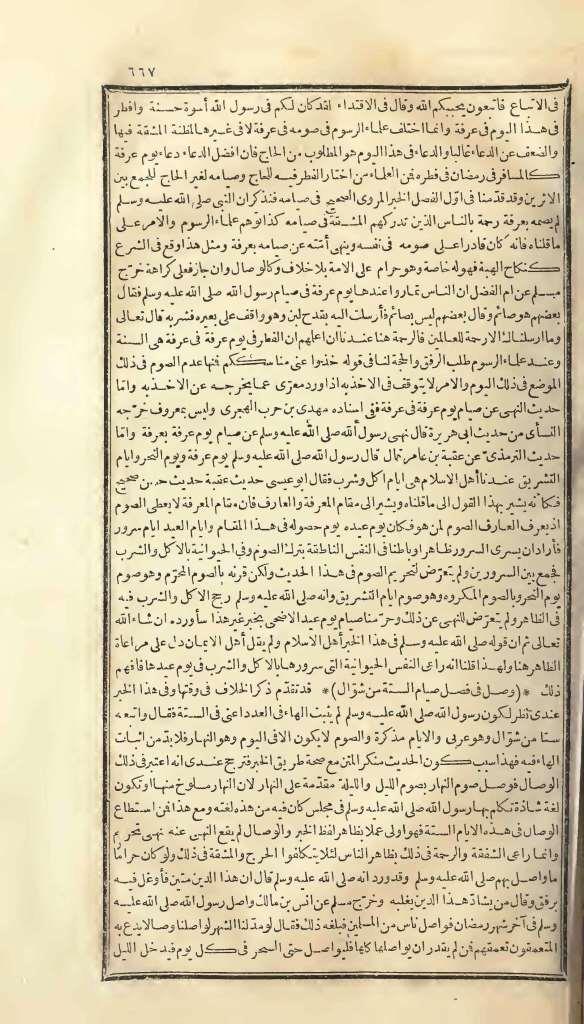 ٦٦٧
فى الاتباع فاتبعون يحببكم الله وقال فى الاقتداء لقد كان لكم فى رسول الله أسوة حسنة وافطر
فى هذا اليوم فى عرفة وانما اختلف علماء الرسوم فى صومه فى عرفة لا فى غيرها لمظنة المشقة فيها
والضعف عن الدعاء غالبا والدعاء فى هذا اليوم هو المطلوب من الحاج فان افضل الدعاء دعاء يوم عرفة
كالمسافر فى رمضان فى فطره فمن العلماء من اختار الفطر فيه للحاج وصيامه لغير الحاج للجمع بين
الاثرين وقد قدّمنا فى اوّل الفصل الخبر المروى الصحيح فى صيامه فنذكر ان النبى صلى الله عليه وسلم
لم يصمه بعرفة رحمة بالناس الذين تدركهم المشقة فى صيامه كذا توهم علماء الرسوم والامر على
ما قلناه فانه كان قادرا على صومه فى نفسه وينهى أمّته عن صيامه بعرفة ومثل هذا وقع فى الشرع
كنكاح الهبة فهو له خاصة وهو حرام على الامة بلا خلاف وكالوصال وان جاز فعلى كراهة خرّج
مسلم عن ام الفضل ان الناس تماروا عندها يوم عرفة فى صيام رسول الله صلى الله عليه وسلم فقال
بعضهم هو صائم وقال بعضهم ليس بصائم فأرسلت اليه بقدح لبن وهو واقف على بعيره فشربه قال تعالى
وما ارسلناك الا رحمة للعالمين فالرحمة هنا عندنا ان اعلمهم ان الفطر فى يوم عرفة فى عرفة هى السنة
وعند علماء الرسوم طلب الرفق والحجة لنا فى قوله خذوا عنى مناسككم فنها عدم الصوم فى ذلك
الموضع فى ذلك اليوم والامر لا يتوقف فى الاخذ به اذا ورد معرّى عما يخرجه عن الاخذ به وامّا
حديث النهى عن صيام يوم عرفة فى عرفة ففى اسناده مهدى بن حرب الهجرى وليس بمعروف خرّجه
النسأى من حديث ابى هريرة قال نهى رسول الله صلى الله عليه وسلم عن صيام يوم عرفة بعرفة وامّا
حديث الترمذىّ عن عقبة بن عامر قال قال رسول الله صلى الله عليه وسلم يوم عرفة ويوم النحر وايام
التشريق عندنا أهل الاسلام هى ايام اكل وشرب فقال ابو عيسى حديث عقبة حديث حسن صحيح
فكأنه يشير بهذا القول الى ما قلناه ويشير الى مقام المعرفة والعارف فان مقام المعرفة لا يعطى الصوم
اذ يعرف العارف الصوم لمن هو فكان يوم عيده يوم حصوله فى هذا المقام وايام العيد ايام سرور
فأراد ان يسرى السرور ظاهرا وباطنا فى النفس الناطقة بترك الصوم وفى الحيوانية بالاكل والشرب
فجمع بين السرورين ولم يتعرّض لتحريم الصوم فى هذا الحديث ولكن قرنه بالصوم المحرّم وهو صوم
يوم النحر وبالصوم المكروه وهو صوم ايام التشريق وانه صلى الله عليه وسلم رجح الاكل والشرب فيه
فى الظاهر ولم يتعرّض للنهى عن ذلك وحرّمنا صيام يوم عيد الاضحى بخبر غير هذا سأورده ان شاء الله
تعالى ثم ان قوله صلى الله عليه وسلم فى هذا الخبر أهل الاسلام ولم يقل أهل الايمان دل على مراعاة
الظاهر هنا ولهذا قلنا انه راعى النفس الحيوانية التى سرورها بالاكل والشرب فى يوم عيدها فافهم
ذلك * (وصل فى فصل صيام الستة من شوّال) * قد تقدّم ذكر الخلاف فى وقتها وفى هذا الخبر
عندى نظر لكون رسول الله صلى الله عليه وسلم لم يثبت الهاء فى العدد اعنى فى الستة فقال واتبعه
ستا من شوّال وهو عربى والايام مذكرة والصوم لا يكون الا فى اليوم وهو النهار فلابد من اثبات
الهاء فيه فهذا سبب كون الحديث منكر المتن مع صحة طريق الخبر فترجح عندى انه اعتبر فى ذلك
الوصال فوصل صوم النهار بصوم الليل والليلة مقدّمة على النهار لان النهار مسلوخ منها او تكون
لغة شاذة تكلم بها رسول الله صلى الله عليه وسلم فى مجلس كان فيه من هذه لغته ومع هذا فمن استطاع
الوصال فى هذه الايام الستة فهو اولى عملا بظاهر لفظ الخبر والوصال لم يقع النهى عنه نهى تحريم
وانما راعى الشفقة والرحمة فى ذلك بظاهر الناس لئلا يتكلفوا الحرج والمشقة فى ذلك ولو كان حراما
ما واصل بهم صلى الله عليه وسلم وقد ورد انه صلى الله عليه وسلم قال ان هذا الدين متين فأوغل فيه
برفق وقال من يشادّ هذا الدين يغلبه وخرّج مسلم عن انس بن مالك واصل رسول الله صلى الله عليه
وسلم فى آخر شهر رمضان فواصل ناس من المسلمين فبلغه ذلك فقال لو مدّ لنا الشهر لواصلنا وصالا يدع به
المتعمقون تعمقهم فمن لم يقدر ان يواصلها كلها فليواصل حتى السحر فى كل يوم فيدخل الليل